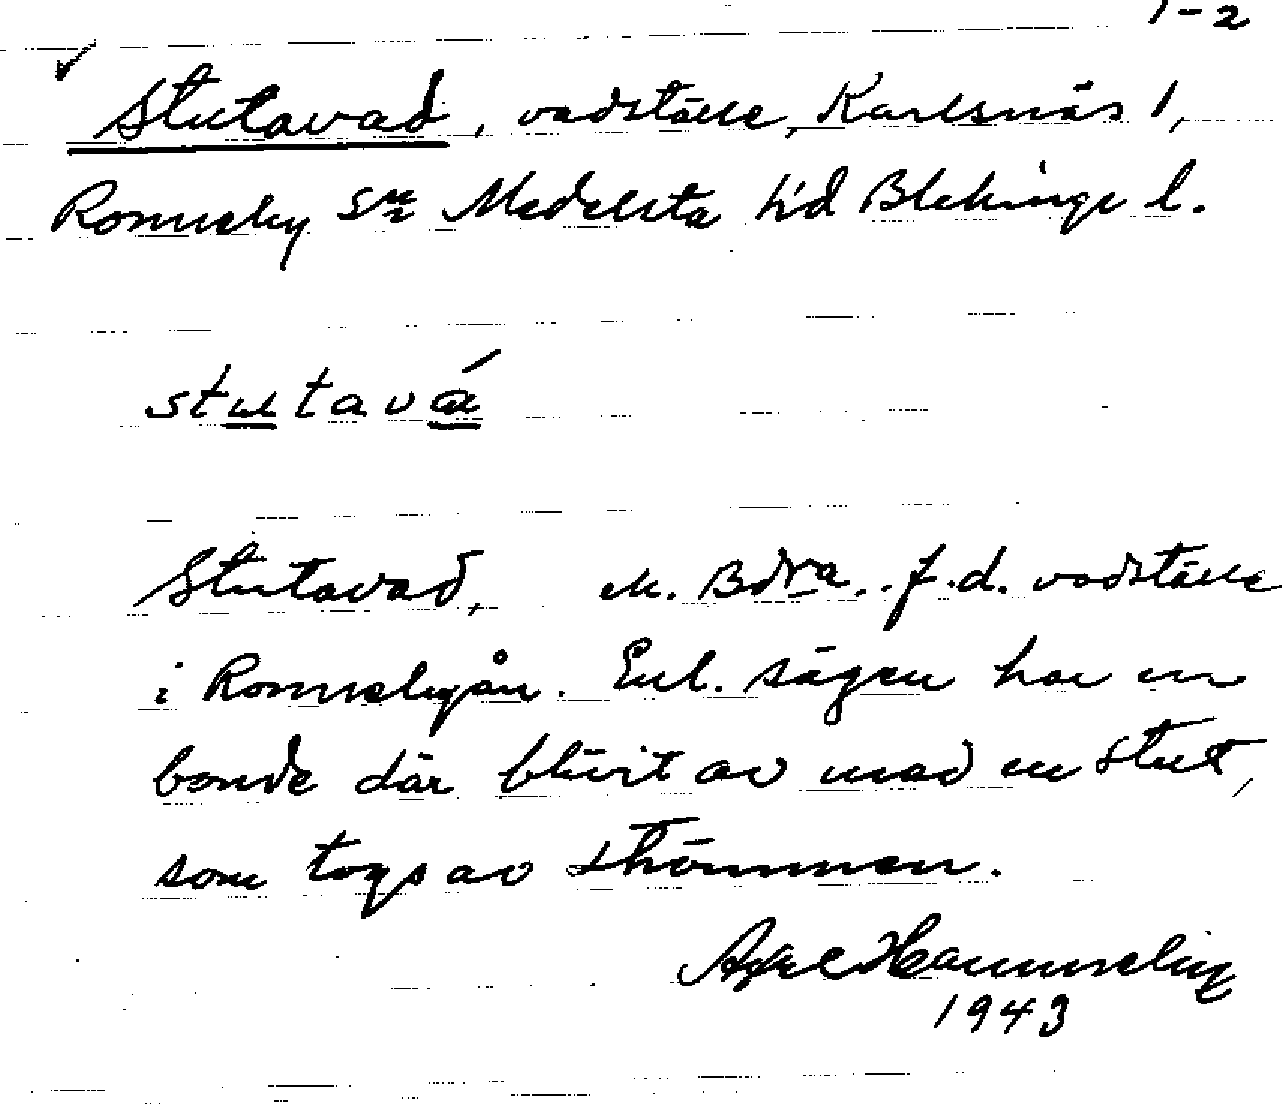 1-2
Stutavad, vadställe, Karlsnäs 1,
Ronneby sn Medelsta hd Blekinge l.
stutavá
Stutavad, f.d. vadställe
i Ronnebyån. Enl. sägen har en
bonde där blivit av med en stut,
som togs av strömmen.
Axel
1943